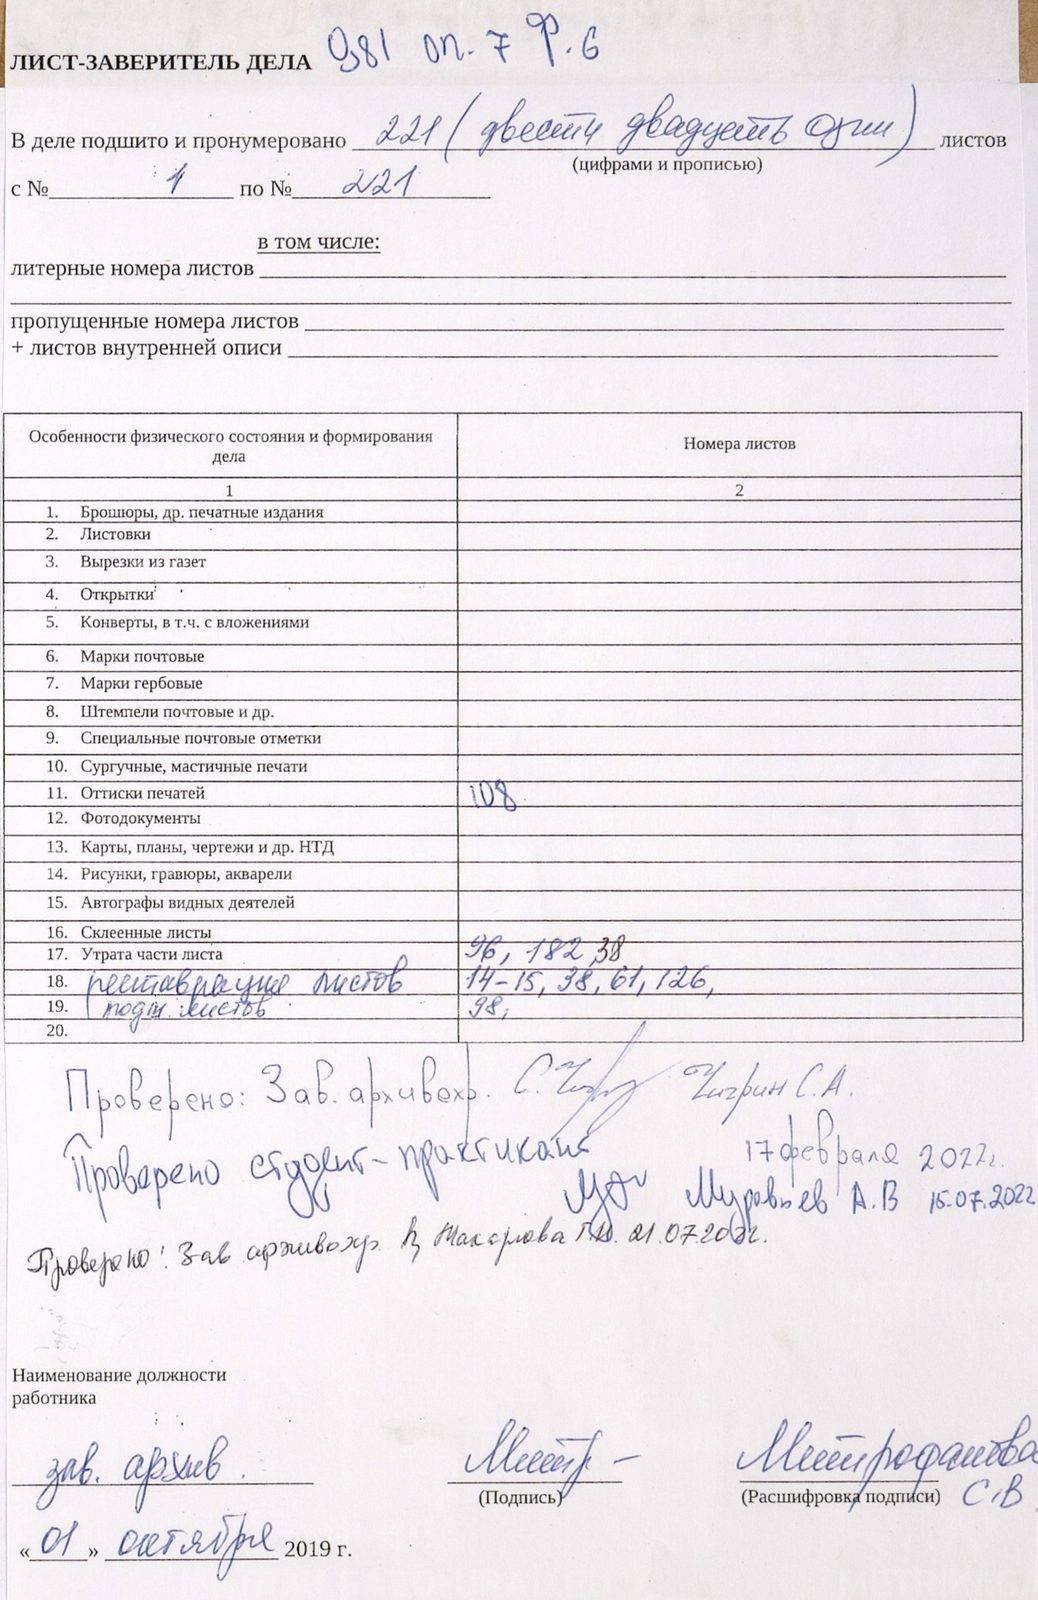 ЛИСТ-ЗАВЕРИТЕЛЬ ДЕЛА 981 оп. 7 Ф. 6
В деле подшито и пронумеровано 221 (двести двадцать один) листов
(цифрами и прописью)
с № 1 по № 221
в том числе:
литерные номера листов
пропущенные номера листов
+ листов внутренней описи
Особенности физического состояния и формирования дела Номера листов
1 2
1. Брошюры, др. печатные издания
2. Листовки
3. Вырезки из газет
4. Открытки
5. Конверты, в т.ч. с вложениями
6. Марки почтовые
7. Марки гербовые
8. Штемпели почтовые и др.
9. Специальные почтовые отметки
10. Сургучные, мастичные печати
11. Оттиски печатей 108
12. Фотодокументы
13. Карты, планы, чертежи и др. НТД
14. Рисунки, гравюры, акварели
15. Автографы видных деятелей
16. Склеенные листы
17. Утрата части листа 96, 182, 38
18. реставрация листов 14-15, 38, 61, 126,
19. подш. листов 98,
20.
Проверено: Зав. архивохр. Чигрин С.А.
17 февраля 2022г.
Проверено студент-практикант Муравьев А.В 15.07.2022
Проверено: Зав архивохр. Макарова 21.07.2022г.
Наименование должности
работника
зав. архив. Митр- Митрофанова
(Подпись) (Расшифровка подписи) С.В
«01» октября 2019 г.